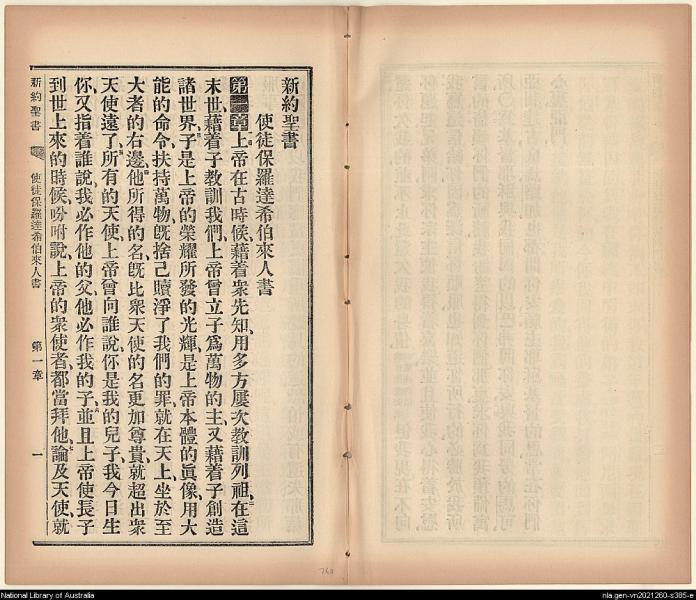 新約聖書
使徒保羅達希伯來人書
第一章 上帝在古時候、藉着衆先知、用多方屢次教訓列祖、在這
末世、藉着子教訓我們、上帝曾立子爲萬物的主、又藉着子創造
諸世界、子是上帝的榮耀所發的光輝、是上帝本體的眞像、用大
能的命令、扶持萬物、旣捨己贖淨了我們的罪、就在天上坐於至
大者的右邊、他所得的名、旣比衆天使的名更加尊貴、就超出衆
天使遠了、所有的天使、上帝曾向誰說、你是我的兒子、我今日生
你、又指着誰說、我必作他的父、他必作我的子、並且上帝使長子
到世上來的時候、吩咐說、上帝的衆使者都當拜他、論及天使、就
新約聖書 使徒保羅達希伯來人書 第一章 一
National Library of Australia
nla.gen-vn2021260-s385-e